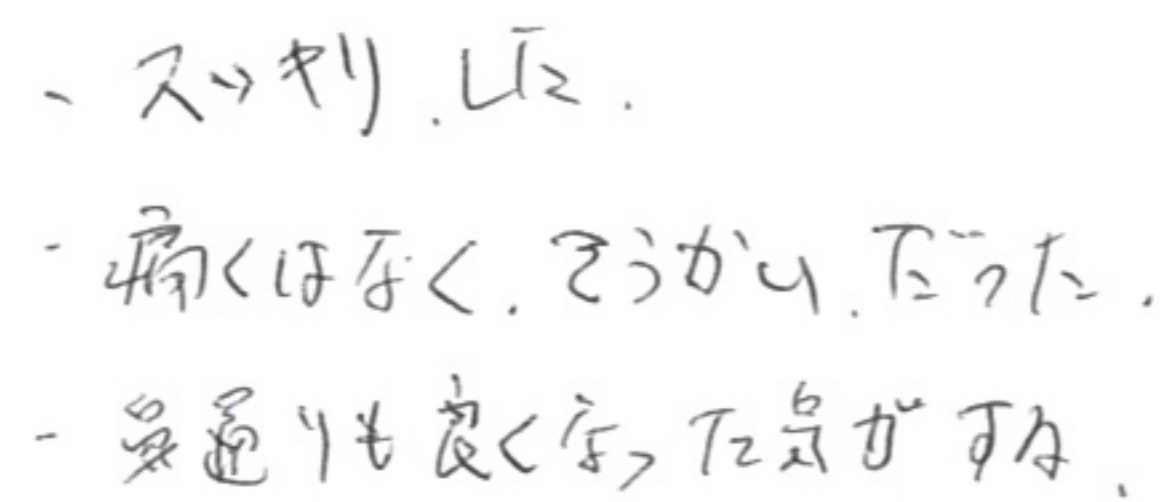 ・スッキリ.した.
・痛くはなく.そうかい.だった.
・鼻通りも良くなった気がする.